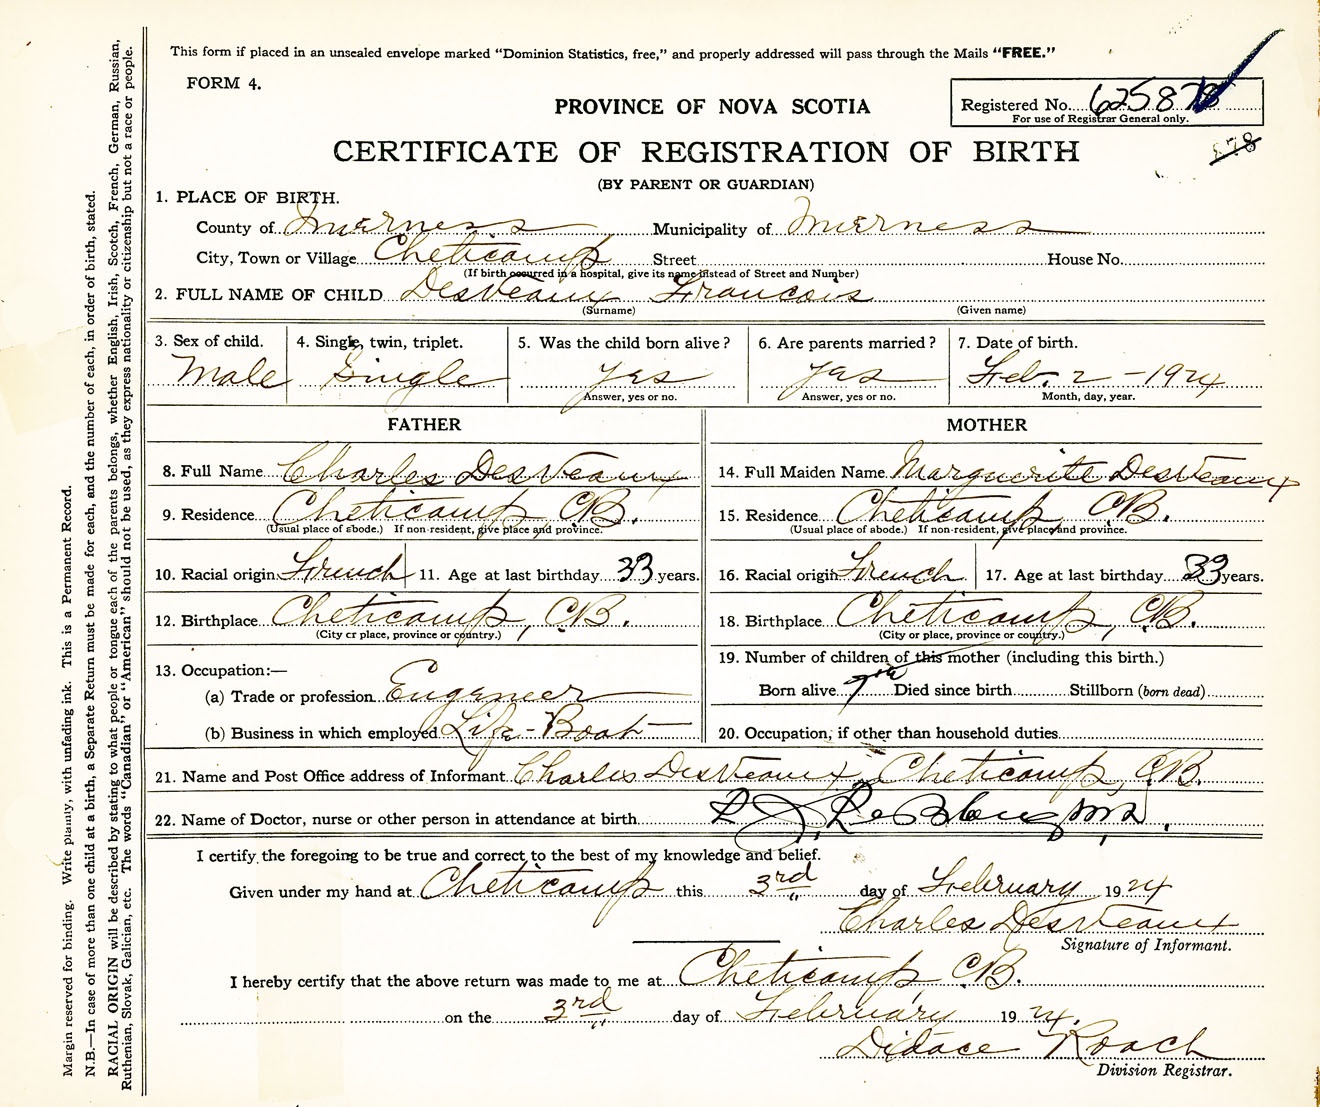 This form if placed in an unsealed envelope marked "Dominion Statistics, free," and properly addressed will pass through the Mails "FREE."
FORM 4.
PROVINCE OF NOVA SCOTIA
Registered No. 625878
For use of Registrar General only.
CERTIFICATE OF REGISTRATION OF BIRTH
878
(BY PARENT OR GUARDIAN)
1. PLACE OF BIRTH.
County of Inverness Municipality of Inverness
City, Town or Village Cheticamp Street House No.
(If birth occurred in a hospital, give its name instead of Street and Number)
2. FULL NAME OF CHILD DesVeaux Francois
(Surname) (Given name)
3. Sex of child. 4. Single, twin, triplet. 5. Was the child born alive? 6. Are parents married? 7. Date of birth.
Male Single yes yes Feb. 2 - 1924
Answer, yes or no. Answer, yes or no. Month, day, year.
FATHER MOTHER
8. Full Name Charles DesVeaux 14. Full Maiden Name Marguerite DesVeaux
9. Residence Cheticamp CB. 15. Residence Cheticamp, CB.
(Usual place of abode.) If non-resident, give place and province. (Usual place of abode.) If non-resident, give place and province.
10. Racial origin French 11. Age at last birthday 33 years. 16. Racial origin French 17. Age at last birthday 33 years.
12. Birthplace Cheticamp, CB. 18. Birthplace Cheticamp, CB.
(City or place, province or country.) (City or place, province or country.)
13. Occupation:— 19. Number of children of this mother (including this birth.)
(a) Trade or profession Engeneer Born alive 7th Died since birth Stillborn (born dead)
(b) Business in which employed Life-Boat 20. Occupation, if other than household duties
21. Name and Post Office address of Informant Charles DesVeaux, Cheticamp, CB.
22. Name of Doctor, nurse or other person in attendance at birth
I certify the foregoing to be true and correct to the best of my knowledge and belief.
Given under my hand at Cheticamp this 3rd day of February 1924
Charles DesVeaux
Signature of Informant.
I hereby certify that the above return was made to me at Cheticamp CB.
on the 3rd day of February 1924.
Didace Roach
Division Registrar.
Margin reserved for binding. Write plainly, with unfading ink. This is a Permanent Record.
N.B.—In case of more than one child at a birth, a Separate Return must be made for each, and the number of each, in order of birth, stated.
RACIAL ORIGIN will be described by stating to what people or tongue each of the parents belongs, whether English, Irish, Scotch, French, German, Russian,
Ruthenian, Slovak, Galician, etc. The words "Canadian" or "American" should not be used, as they express nationality or citizenship but not a race or people.